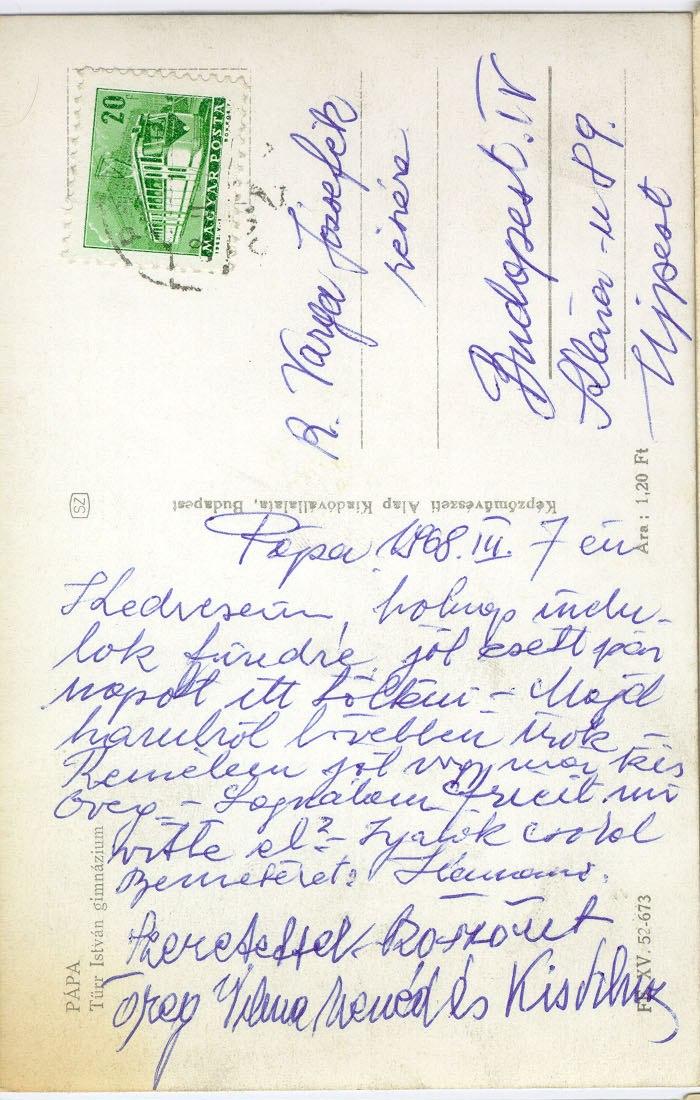 20
MAGYAR POSTA
R. Varga Józsefék
részére
Budapest. IV
Klára-u 89.
Ujpest
SZ
Képzőművészeti Alap Kiadóvállalata, Budapest
Ára: 1,20 Ft
Pápa. 1968. III. 7 én
Kedveseim, holnap indu-
lok füredre, jól esett pár
napot itt tölteni - Majd
bővebben írok -
Remélem jól vagy már kis
öreg. - Sajnálom Fricit mi
vitte el? -
szeretettel:
Szeretettel
Öreg Vilma nenéd és Kis Vilma
PÁPA
Türr István gimnázium
XV. 52-673